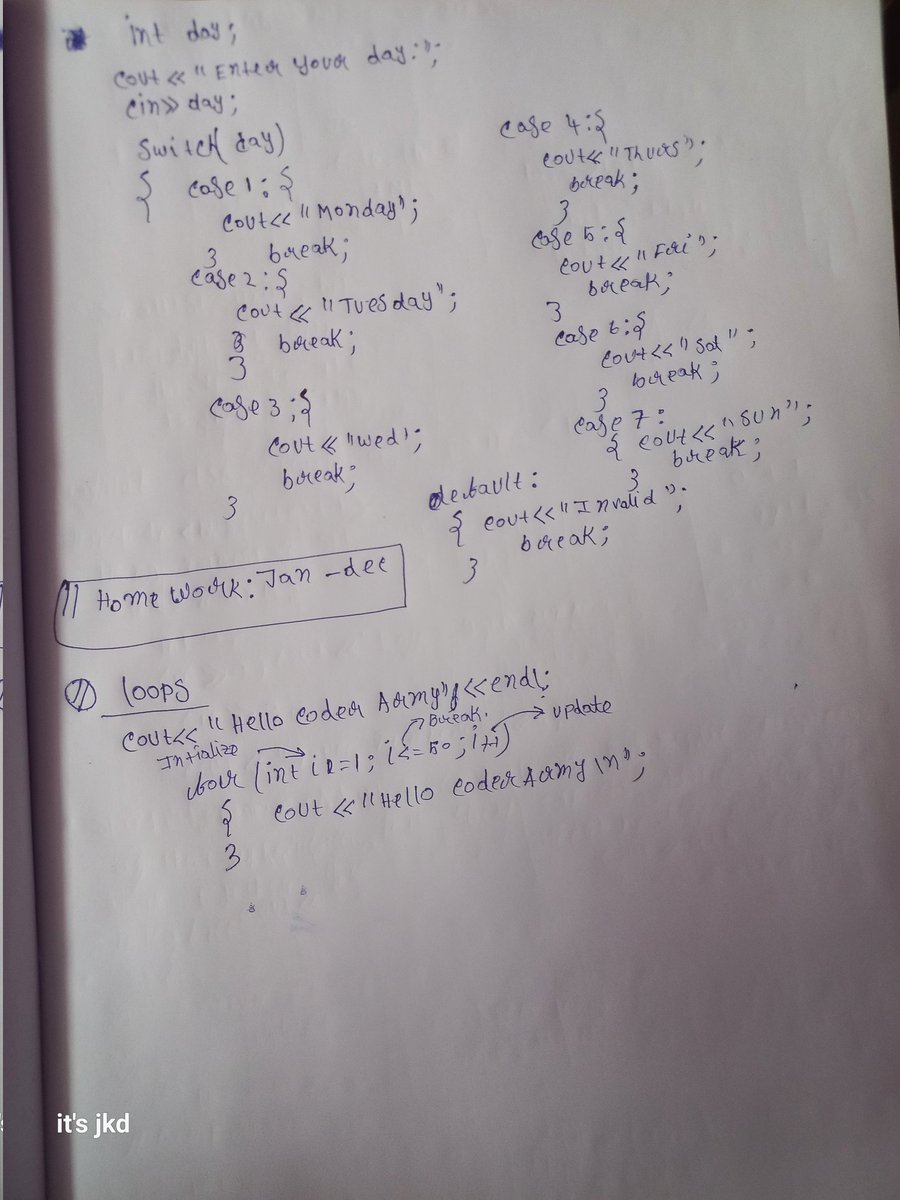 int day;
cout<< "Enter your day:";
cin>> day;
switch(day)
{ case 1: {
cout<< "Monday";
} break;
case 2: {
cout << "Tuesday";
break;
}
case 3 ;{
cout << "wed";
break;
}
case 4:{
cout<< "Thurs";
break;
}
case 5:{
cout<< "Fri";
break;
}
case 6:{
cout<< "Sat";
break;
}
case 7:
{ cout<< "SUN";
break;
}
default:
{ cout<< "Invalid";
break;
}
// Home work: Jan - dec
loops
cout<< "Hello Coder Army"<<endl;
Break.
update
Intialize
for (int i=1; i<=50; i++)
{ cout << "Hello coder Army \n";
}
it's jkd